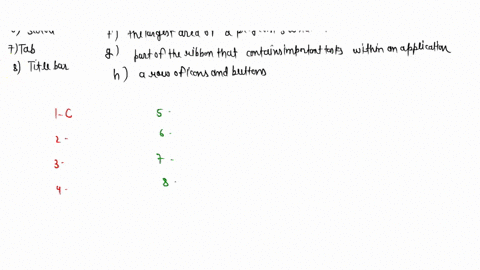 7) Tab
g) part of the ribbon that contains important tasks within an application
8) Title bar
h) a row of icons and buttons
f) the largest area of a
1-C
5 -
2 -
6 -
3 -
7 -
4 -
8 -